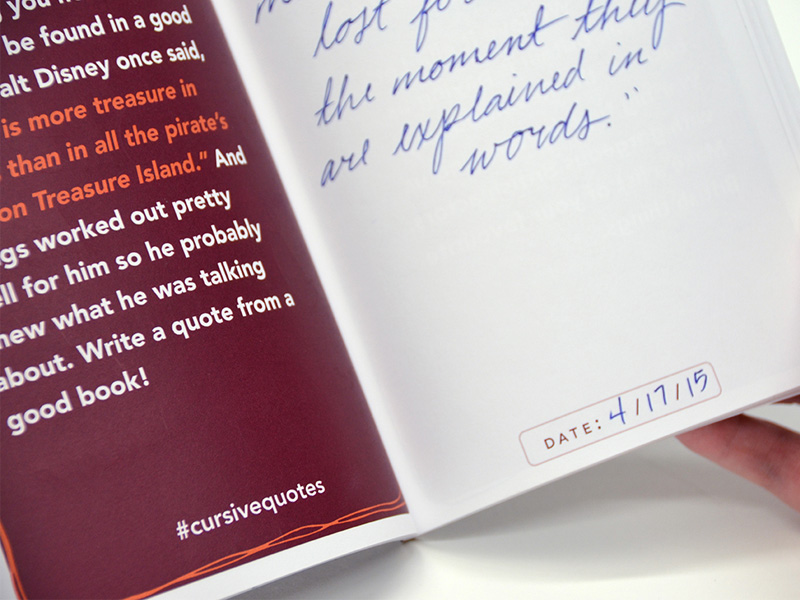 be found in a good
alt Disney once said,
is more treasure in
than in all the pirate's
on Treasure Island." And
gs worked out pretty
ll for him so he probably
new what he was talking
about. Write a quote from a
good book!
#cursivequotes
lost fo
the moment they
are explained in
words."
DATE: 4/17/15